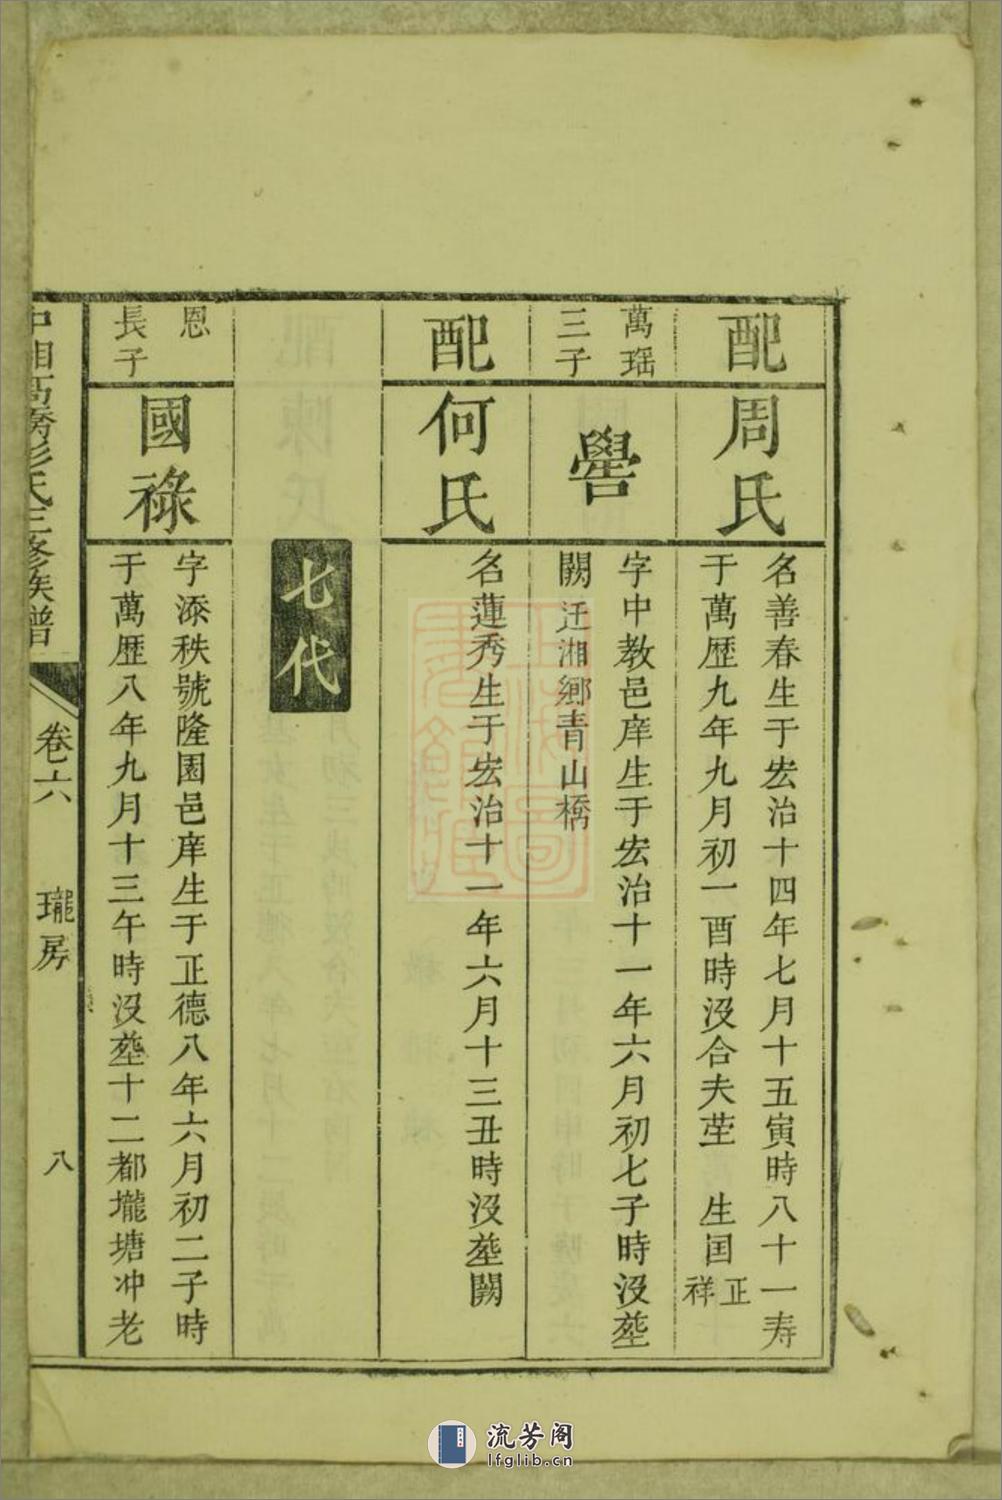 配
周氏
名善春生于宏治十四年七月十五寅時八十一寿
于萬歴九年九月初一酉時沒合夫茔 生国正祥
萬瑶
三子
譽
字中教邑庠生于宏治十一年六月初七子時沒塟
闕迁湘鄉青山橋
配
何氏
名蓮秀生于宏治十一年六月十三丑時沒塟闕
七代
恩
長子
國祿
字添秩號隆園邑庠生于正德八年六月初二子時
于萬歴八年九月十三午時沒塟十二都壠塘冲老
中湘高橋彭氏三修族譜
卷六
瓏房
八
流芳阁
lfglib.cn